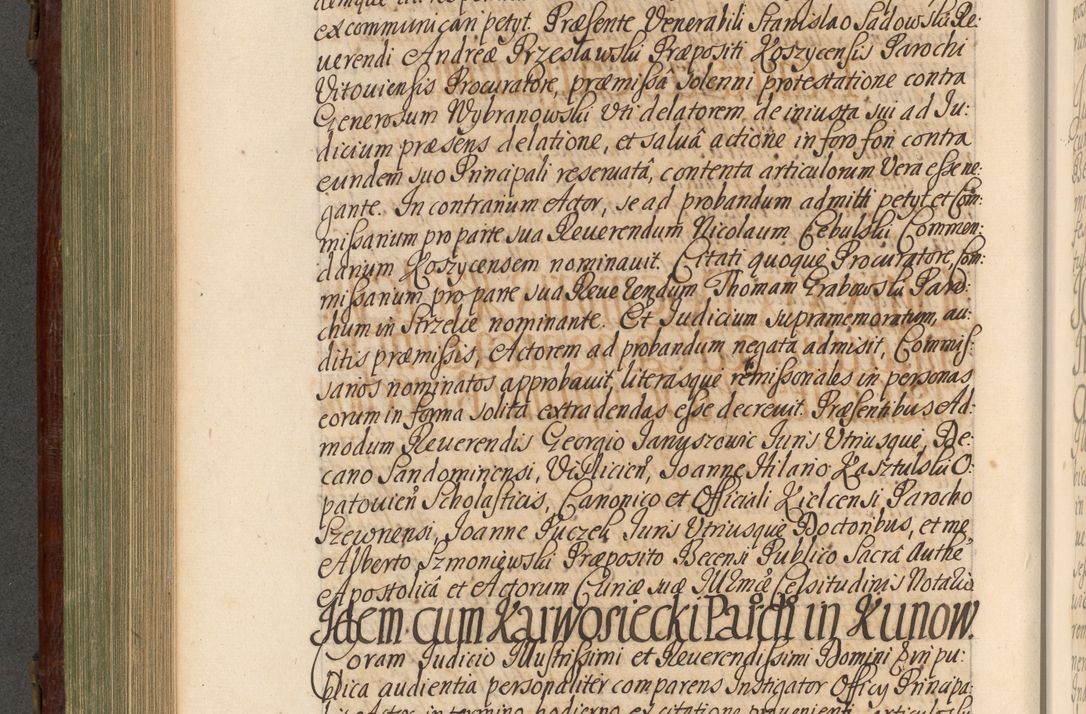 excommunicari petyt. Præsente Venerabili Stanislao Sadowski Re:
uerendi Andreæ Przesławski Præpositi Koszycensis Parochi
Vitouiensis Procuratore, præmissa solenni protestatione contra
Generosum Wybranowski Vti delatorem de iniusta sui ad Ju:
dicium præsens delatione, et saluâ actione in foro fori contra
eundem suo Principali reseruatâ, contenta articulorum Vera esse ne:
gante. In contrarium Actor, se ad probandum admitti petyt et Com:
missarium pro parte sua Reuerendum Nicolaum Cebulski Commen:
darium Koszycensem nominauit. Citati quoque Procuratore, Com:
missarium pro parte sua Reuerendum Thomam Grabowski Paro:
chum in Strzelce nominante. Et Judicium supramemoratum, au:
ditis præmissis, Actorem ad probandum negata admisit, Commis:
sarios nominatos approbauit, literasque remissoriales in personas
eorum in forma solita extradendas esse decreuit. Præsentibus Ad:
modum Reuerendis Georgio Januszowic Juris Vtriusque, De:
cano Sandomiriensi, Vislicien, Joanne Hilario Kasztulski O:
patouien Scholasticis, Canonico et Officiali Kielcensi, Parocho
Joanne Puczek Juris Vtriusque Doctoribus, et me
Alberto Szmoniewski Præposito Becensi Publico Sacrâ Authe
Apostolicâ et Actorum Curiæ suæ Illmæ Celsitudinis Notario
Idem cum Karwosiecki Paroch in Kunow.
Coram Judicio Illustrissimi et Reuerendissimi Domini Eppi pu:
blica audientia personaliter comparens Instigator Officy Principa:
lis Actor in termino hodierno ex citatione proueniente articulos